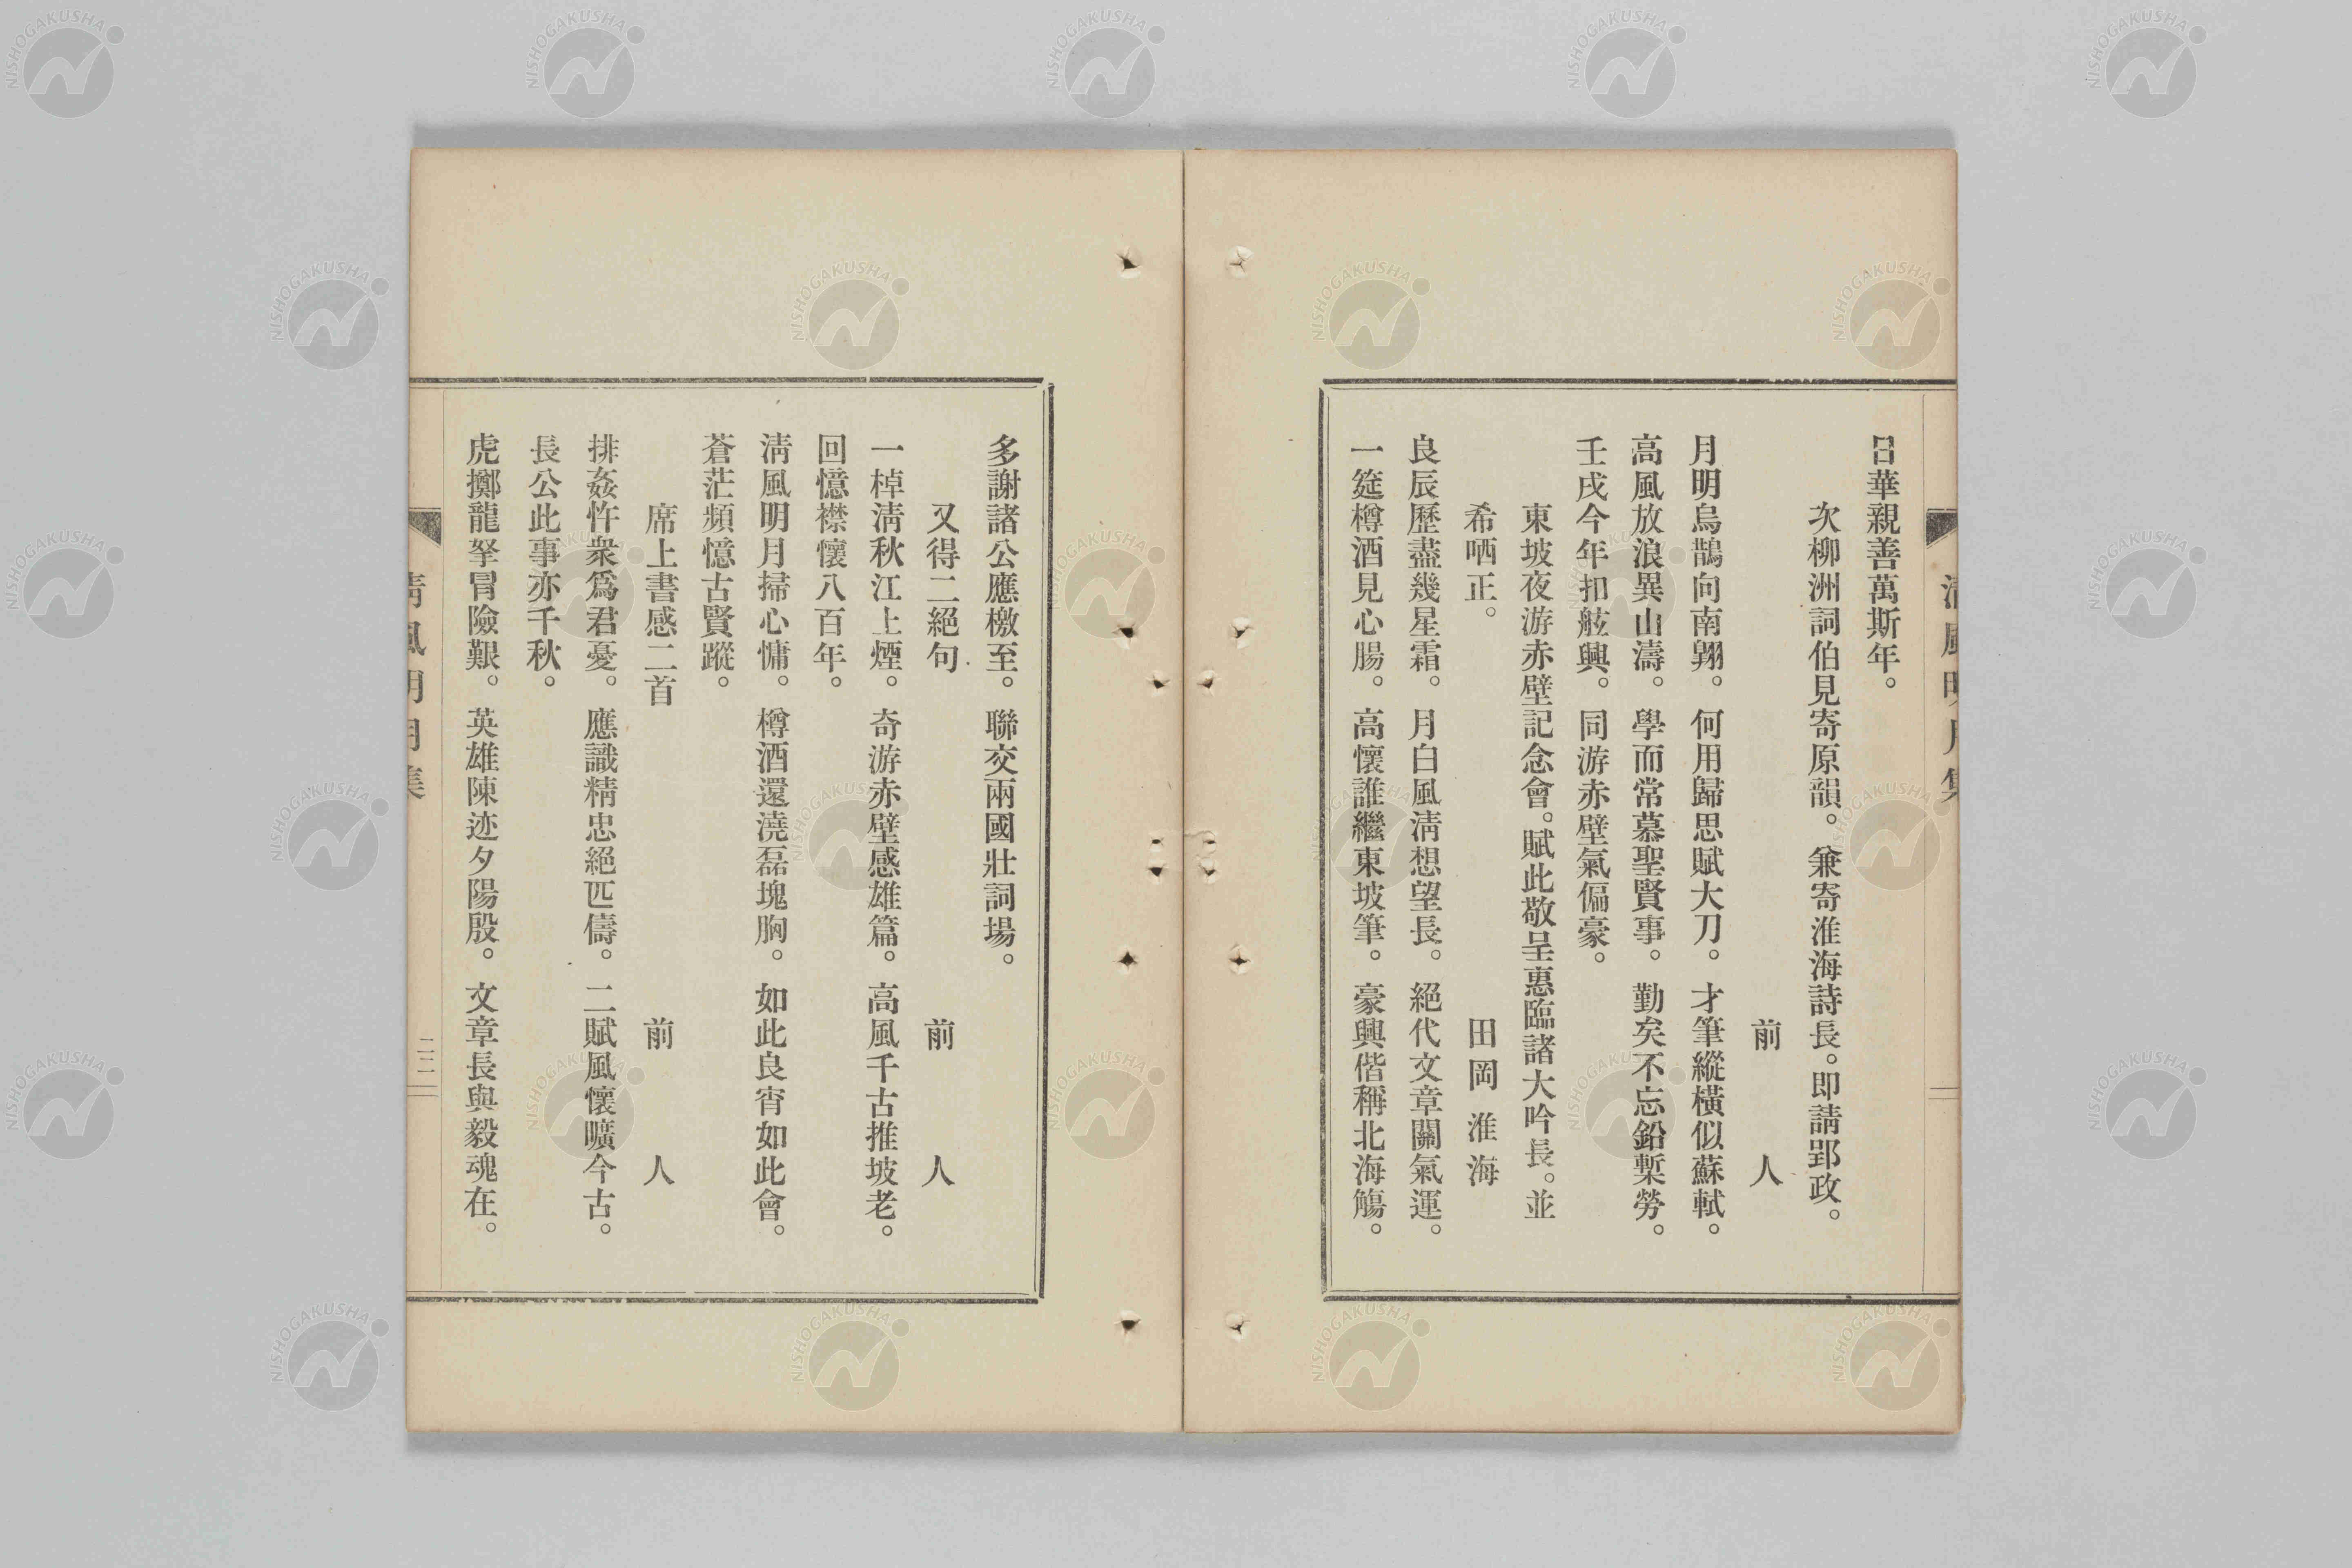 清風明月集
日華親善萬斯年。
次柳洲詞伯見寄原韻。兼寄淮海詩長。即請郢政。
前人
月明烏鵲向南翺。何用歸思賦大刀。才筆縱橫似蘇軾。
高風放浪異山濤。學而常慕聖賢事。勤矣不忘鉛槧勞。
壬戌今年扣舷興。同游赤壁氣偏豪。
東坡夜游赤壁記念會。賦此敬呈惠臨諸大吟長。並
希哂正。
田岡淮海
良辰歷盡幾星霜。月白風淸想望長。絕代文章關氣運。
一筵樽酒見心腸。高懷誰繼東坡筆。豪興偕稱北海觴。
多謝諸公應檄至。聯交兩國壯詞場。
又得二絕句
前人
一棹淸秋江上煙。奇游赤壁感雄篇。高風千古推坡老。
回憶襟懷八百年。
淸風明月掃心慵。樽酒還澆磊塊胸。如此良宵如此會。
蒼茫頻憶古賢蹤。
席上書感二首
前人
排姦忤衆爲君憂。應識精忠絕匹儔。二賦風懷曠今古。
長公此事亦千秋。
虎擲龍拏冒險艱。英雄陳迹夕陽殷。文章長與毅魂在。
清風明月集
二二
NISHOGAKUSHA